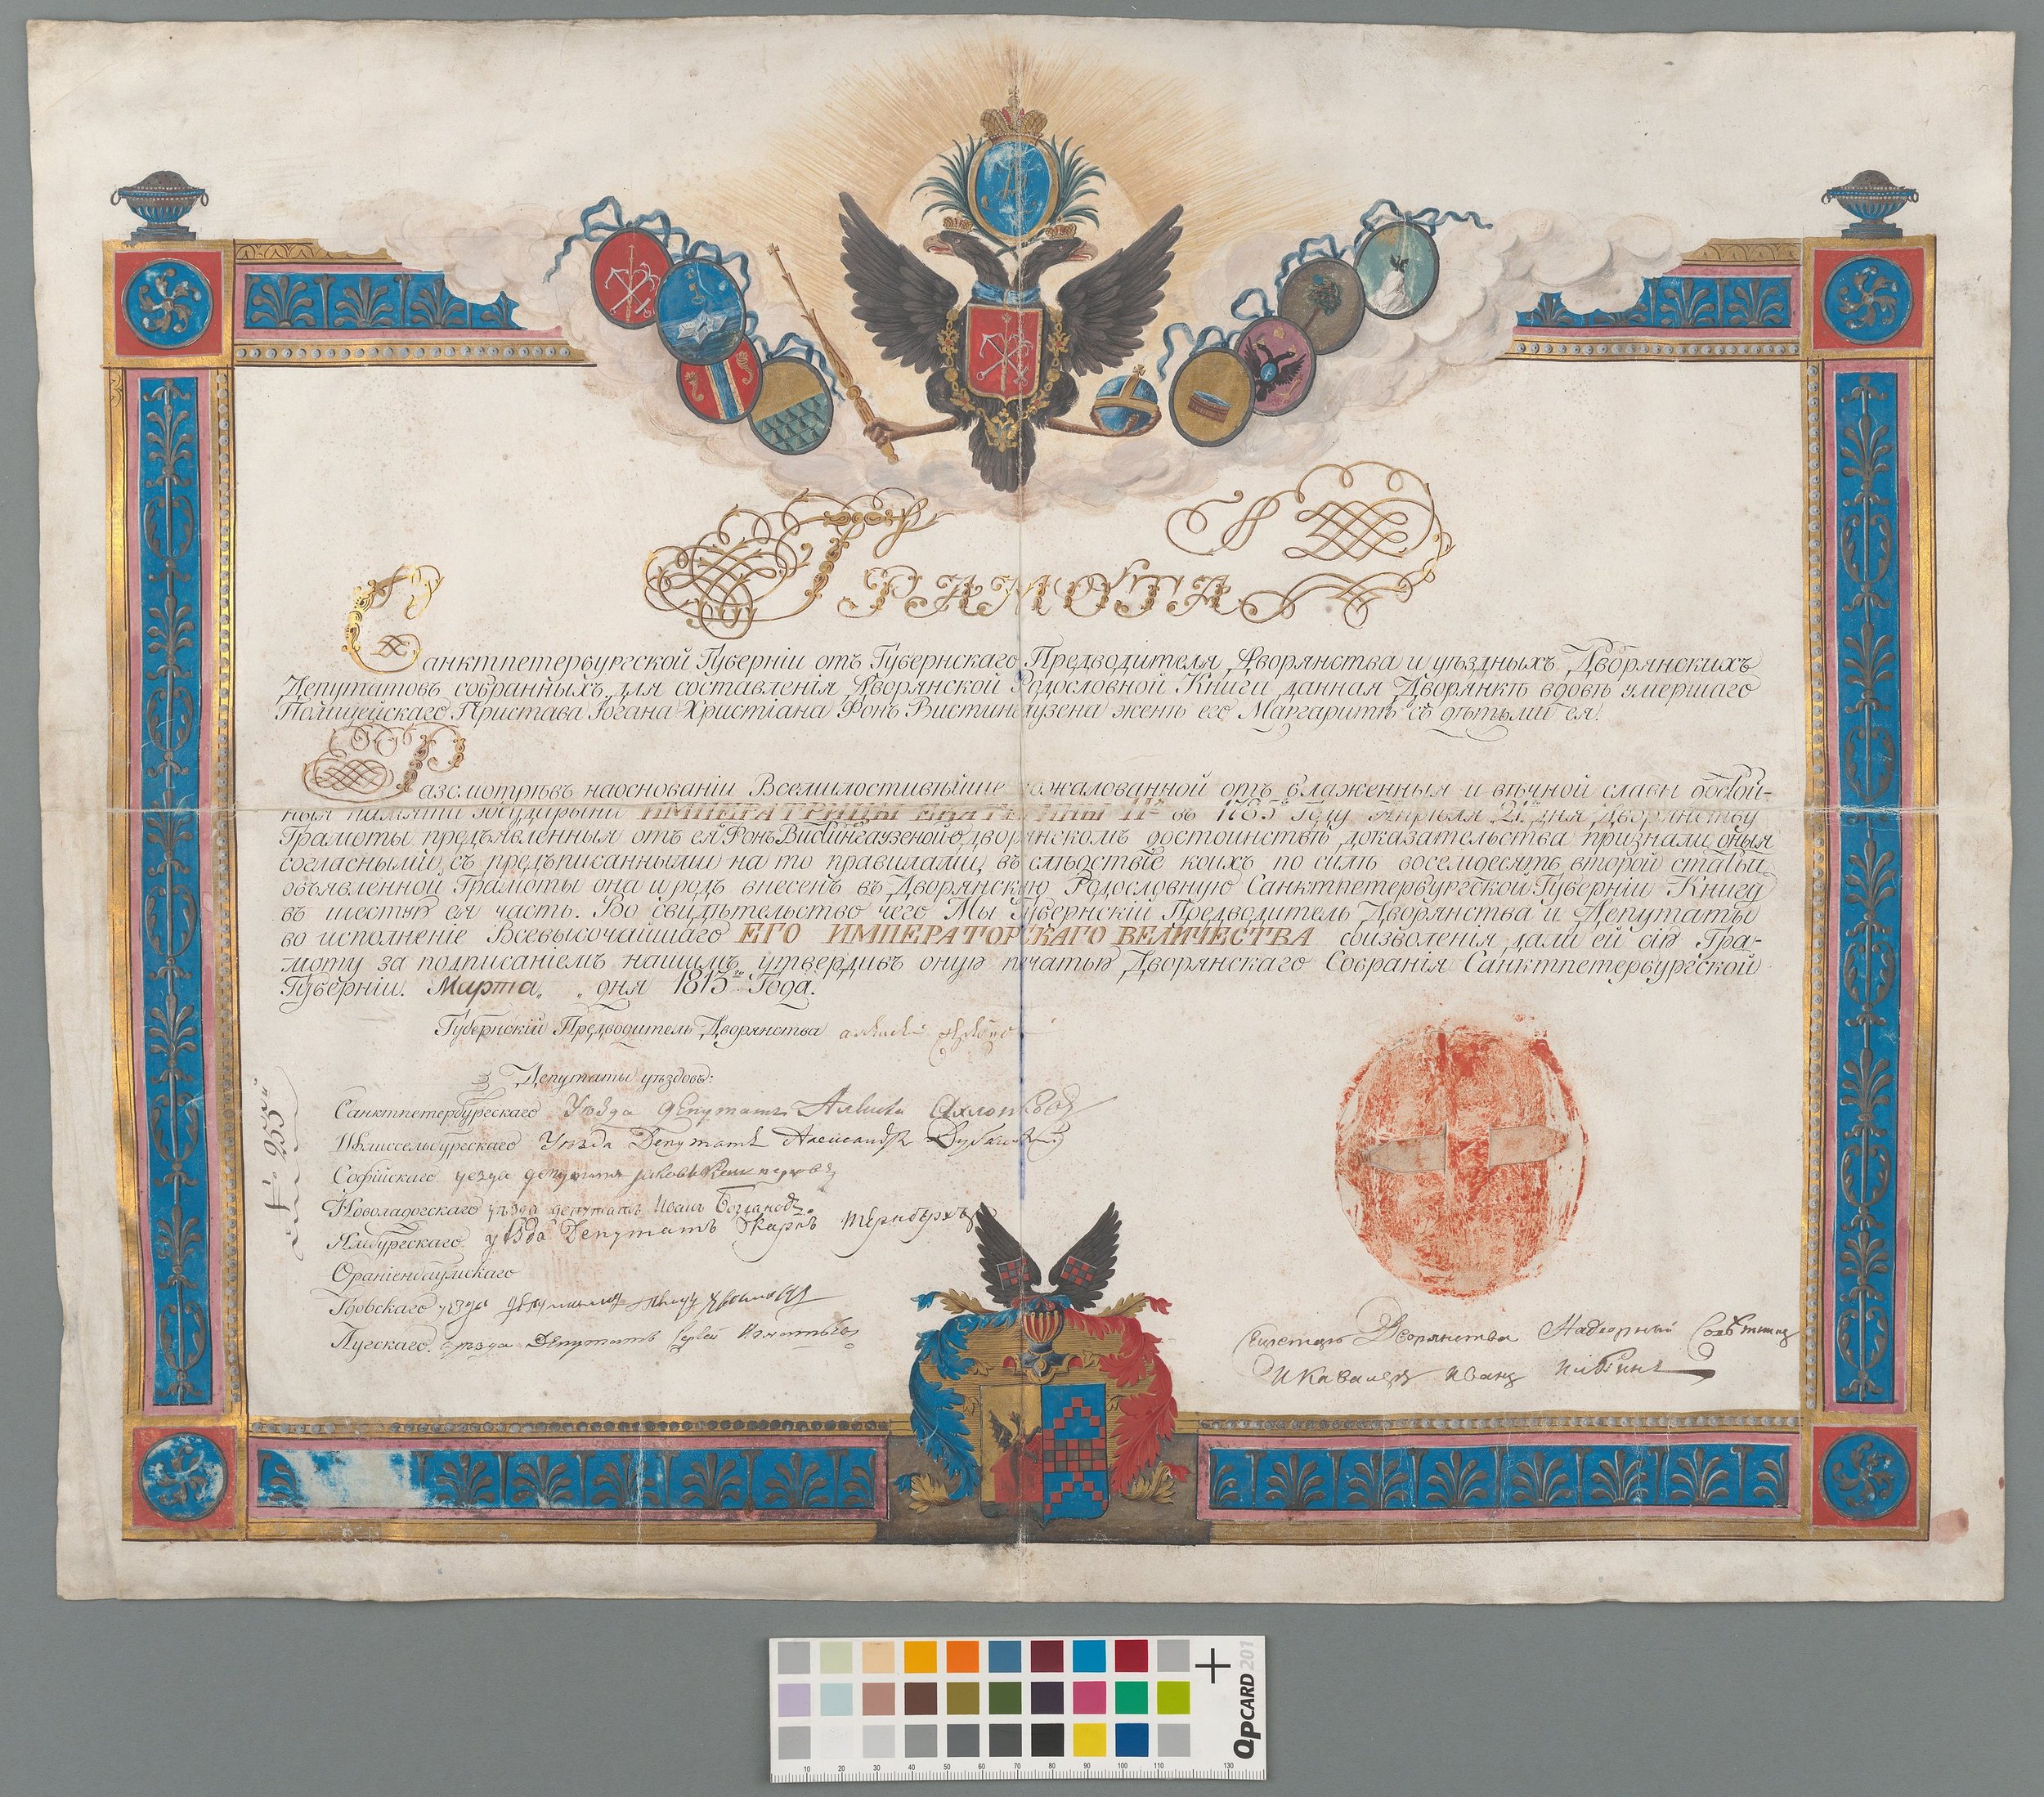 ГРАМОТА
Санктпетербургской Губерніи отъ Губернскаго Предводителя Дворянства и уѣздныхъ Дворянскихъ
Депутатовъ собранныхъ для составленія Дворянской Родословной Книги данная Дворянкѣ вдовѣ умершаго
Полицейскаго Пристава Іогана Христіана Фонъ Вистингаузена женѣ его Маргаритѣ съ дѣтьми ея.
Разсмотрѣвъ наосновании Всемилостивѣйше пожалованной отъ блаженныя и вѣчной славы достой-
ныя памяти Государыни ИМПЕРАТРИЦЫ ЕКАТЕРИНЫ II въ 1785 Году Апрѣля 21 дня Дворянству
Грамоты предъявленныя отъ ея Фонъ Вистингаузеной о дворянскомъ достоинствѣ доказательства признали оныя
согласными съ предъписанными на то правилами, въ слѣдствіе коихъ по силѣ восемдесятъ второй статьи
объявленной Грамоты она и родъ внесенъ въ Дворянскую Родословную Санктпетербургской Губерніи Книгу
въ шестую ея часть. Во свидѣтельство чего Мы Губернскій Предводитель Дворянства и Депутаты
во исполненіе Всевысочайшаго ЕГО ИМПЕРАТОРСКАГО ВЕЛИЧЕСТВА соизволенія дали ей сію Гра-
моту за подписаніемъ нашимъ, утвердивъ оную печатью Дворянскаго Собранія Санктпетербургской
Губерніи. Марта „ „ дня 1813 Года.
Губернскій Предводитель Дворянства
Депутаты уѣздовъ:
Санктпетербургскаго Уѣзда депутатъ
Шлиссельбургскаго Уѣзда Депутатъ Александръ
Софійскаго уезда депутатъ
Новоладогскаго уѣзда депутатъ Иванъ Богдановъ
Ямбургскаго уѣзда Депутатъ Карлъ
Ораніенбаумскаго
Гдовскаго уезда депутатъ
Лугскаго уѣзда Депутатъ Сергей Игнатьевъ
Секретарь Дворянства Надворный Советникъ
И Кавалеръ Иванъ
QPCARD 201
10 20 30 40 50 60 70 80 90 100 110 130